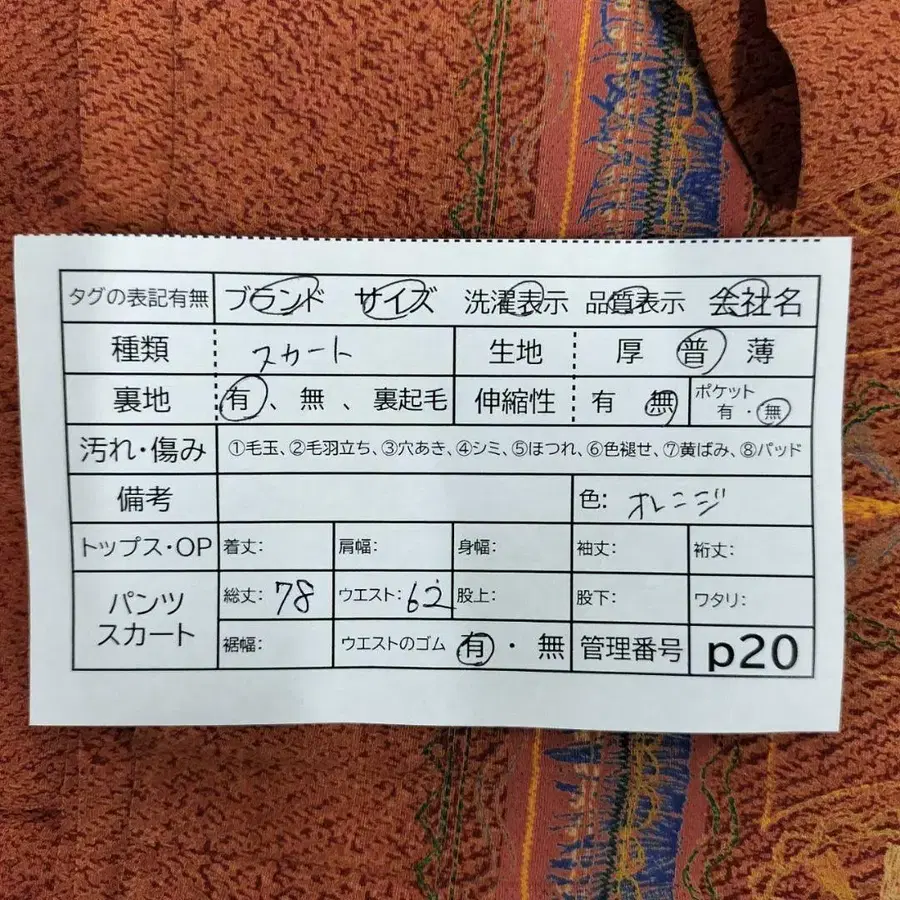 タグの表記有無 ブランド サイズ 洗濯表示 品質表示 会社名
種類 スカート 生地 厚 普 薄
裏地 有、無、裏起毛 伸縮性 有 無 ポケット 有・無
汚れ・傷み ①毛玉、②毛羽立ち、③穴あき、④シミ、⑤ほつれ、⑥色褪せ、⑦黄ばみ、⑧パッド
備考 色: オレンジ
トップス・OP 着丈: 肩幅: 身幅: 袖丈: 裄丈:
パンツ スカート 総丈: 78 ウエスト: 62 股上: 股下: ワタリ:
裾幅: ウエストのゴム 有・無 管理番号 p20